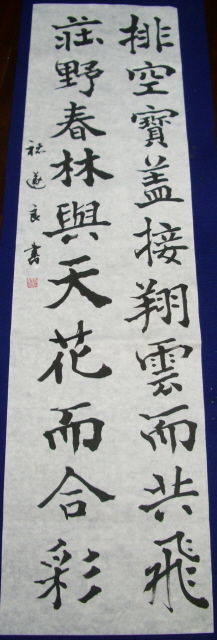 排空寶蓋接翔雲而共飛
莊野春林與天花而合彩
褚遂良書